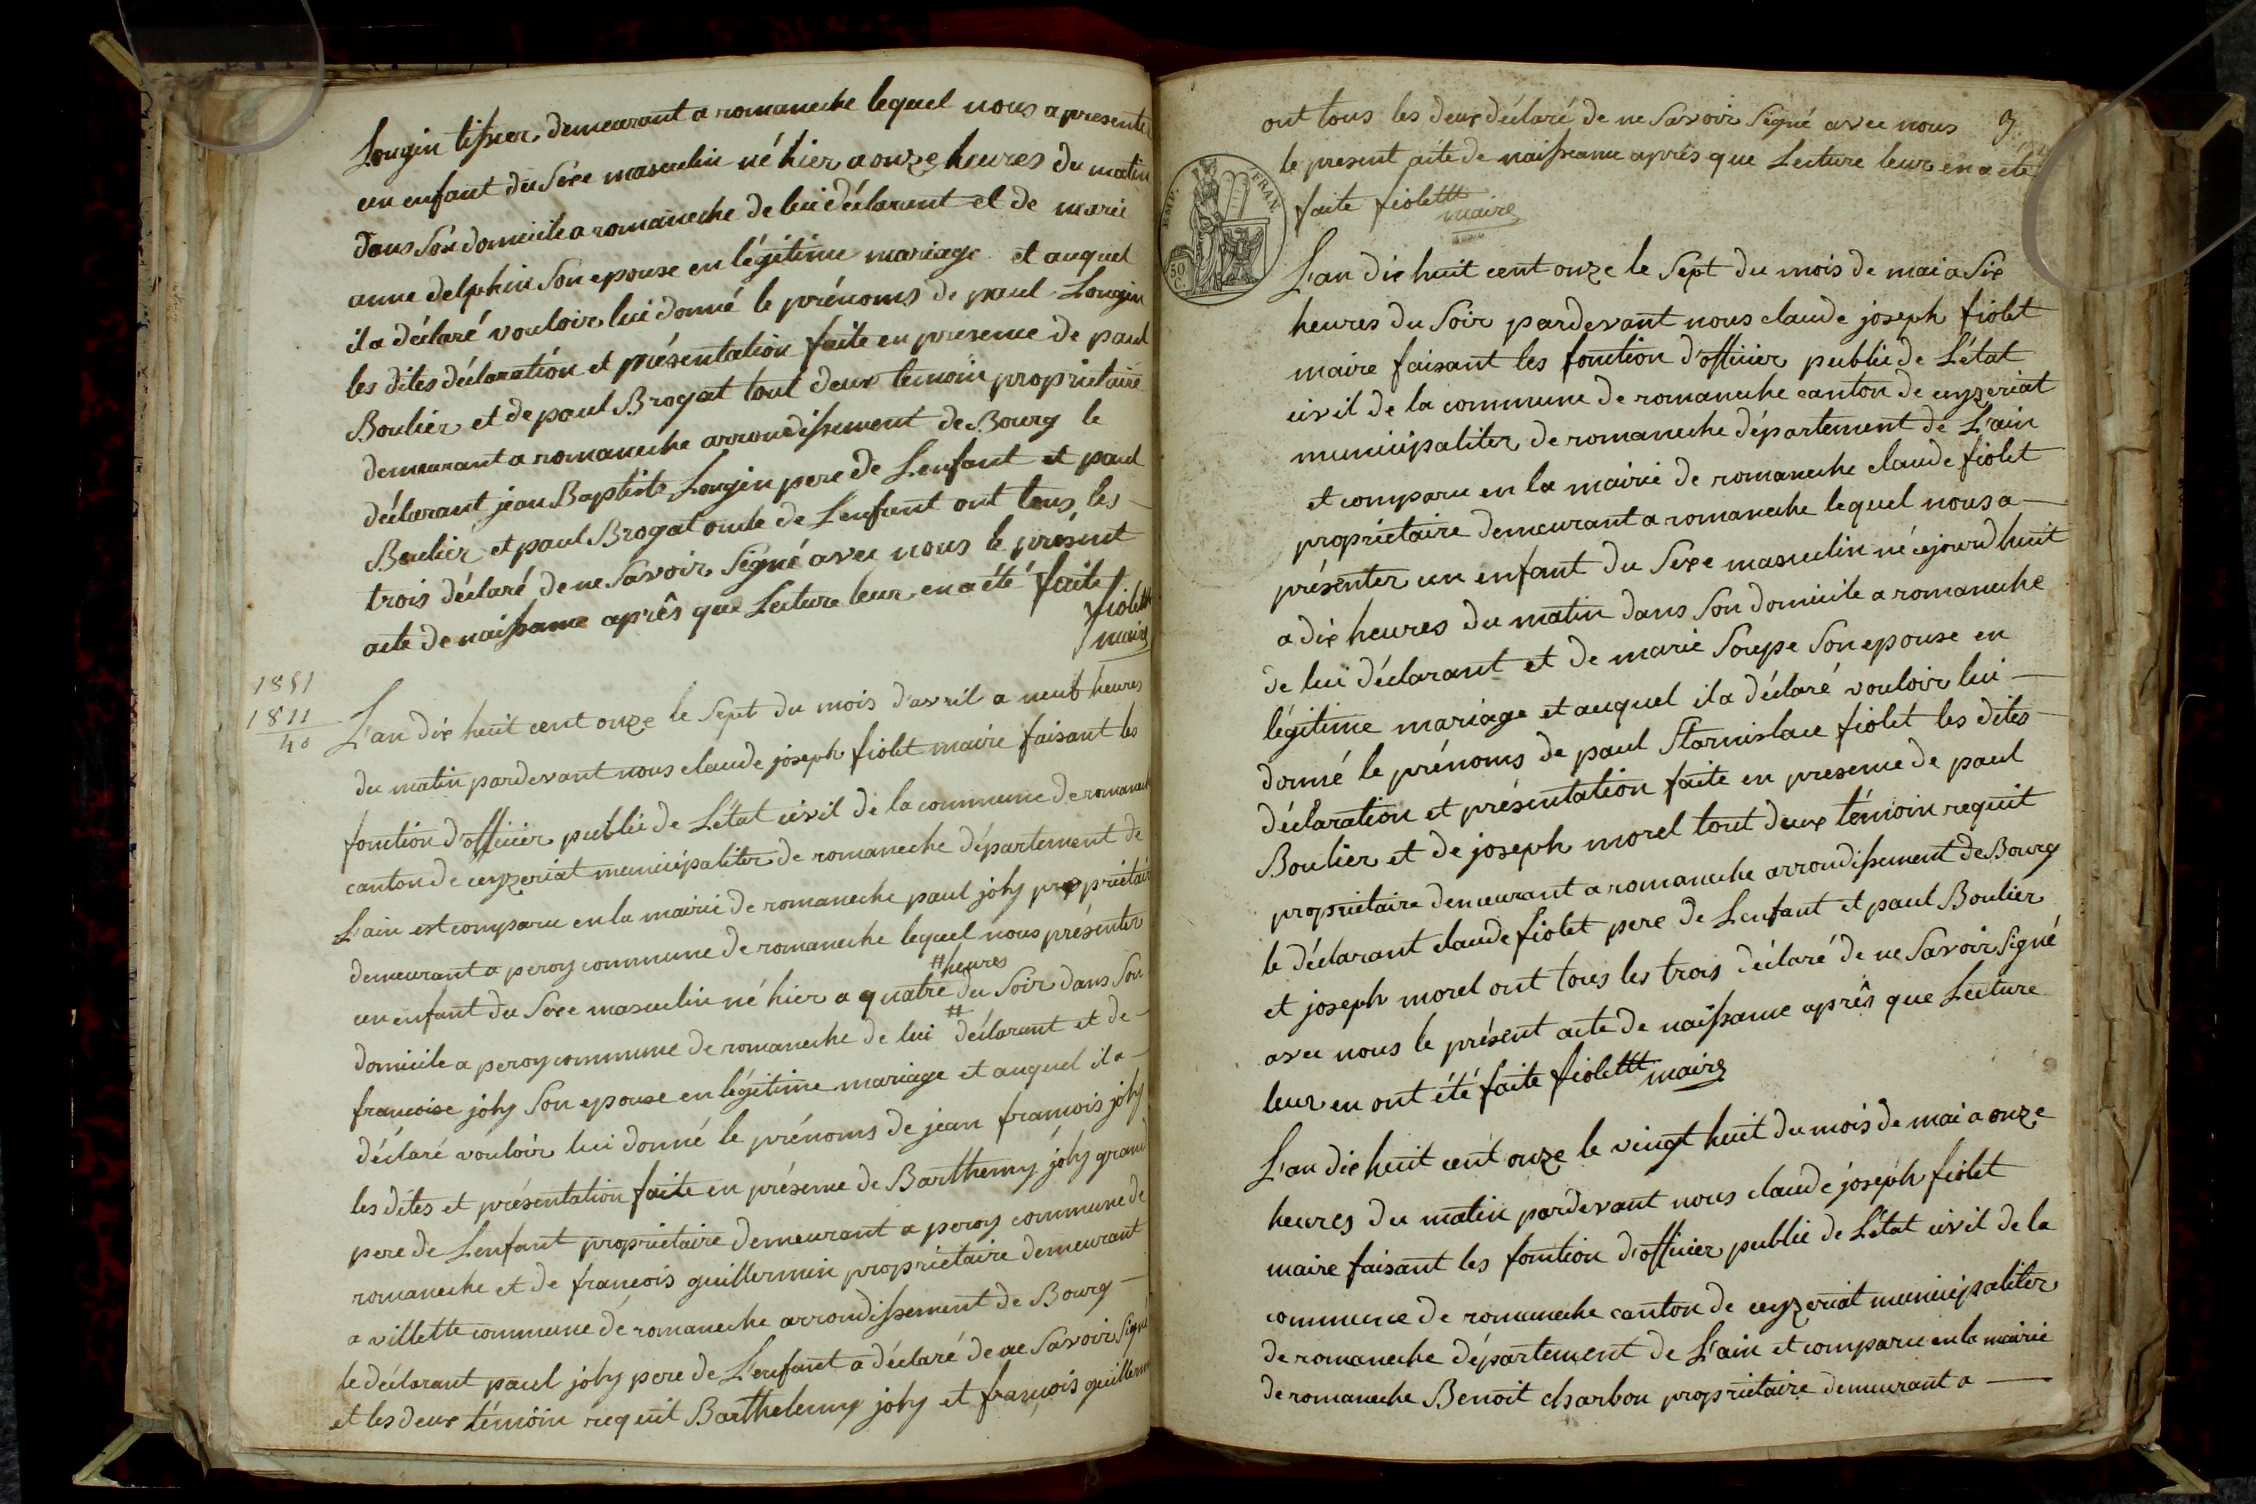 Longin tissier demeurant a romaneche lequel nous a presenter
un enfant du Sexe masculin né hier a onze heures du matin
dans Son domicile a romaneche de lui déclarant et de marie
anne delphin Son epouse en légitime mariage et auquel
il a déclaré vouloir lui donné le prénoms de paul Longin
les dites déclaration et présentation faite en presence de paul
Boulier et de paul Brogat tout deux témoin proprietaire
demeurant a romaneche arrondissement de Bourg le
déclarant jean Baptiste Longin pere de Lenfant et paul
Boulier et paul Brogat oncle de Lenfant ont tous les
trois déclaré de ne Savoir Signé avec nous le présent
acte de naissance aprês que Lecture leur en a été faite
fiolet
maire
1851
1811
40
L'an dix huit cent onze le Sept du mois d'avril a neuf heures
du matin pardevant nous claude joseph fiolet maire faisant les
fonction d'officier public de L'état civil de la commune de romaneche
canton de ceyzeriat municipaliter de romaneche département de
L'ain est comparu en la mairie de romaneche paul joly proprietaire
demeurant a peroy commune de romaneche lequel nous présenter
# heures
un enfant du Sexe masculin né hier a quatre du Soir dans Son
#
domicile a peroy commune de romaneche de lui déclarant et de
francoise joly Son epouse en légitime mariage et auquel il a
déclaré vouloir lui donné le prénoms de jean francois joly
les dites et présentation faite en présence de Barthemy joly grand
pere de Lenfant proprietaire demeurant a peroy commune de
romaneche et de francois guillermin proprietaire demeurant
a villette commune de romaneche arrondissement de Bourg
le déclarant paul joly pere de L'enfant a déclaré de ne Savoir Signé
et les deux témoin requit Barthelemy joly et francois guillermin
ont tous les deux déclaré de ne Savoir Signé avec nous 3
le present acte de naissance aprês que Lecture leur en a été
faite fiolet
maire
EMP. FRAN.
50 C.
L'an dix huit cent onze le Sept du mois de mai a Six
heures du Soir pardevant nous claude joseph fiolet
maire faisant les fonction d'officier public de L'état
civil de la commune de romaneche canton de ceyzeriat
municipaliter de romaneche département de L'ain
et comparu en la mairie de romaneche claude fiolet
proprietaire demeurant a romaneche lequel nous a
présenter un enfant du Sexe masculin né cejourd huit
a dix heures du matin dans Son domicile a romaneche
de lui déclarant et de marie Soupe Son epouse en
légitime mariage et auquel il a déclaré vouloir lui
donné le prénoms de paul Starnislace fiolet les dites
déclaration et présentation faite en presence de paul
Boulier et de joseph morel tout deux témoin requit
proprietaire demeurant a romaneche arrondissement de Bourg
le déclarant claude fiolet pere de Lenfant et paul Boulier
et joseph morel ont tous les trois déclaré de ne Savoir Signé
avec nous le présent acte de naissance aprês que Lecture
leur en ont été faite fiolet maire
L'an dix huit cent onze le vingt huit du mois de mai a onze
heures du matin pardevant nous claude joseph fiolet
maire faisant les fonction d'officier public de L'état civil de la
commune de romaneche canton de ceyzeriat municipaliter
de romaneche département de L'ain et comparu en la mairie
de romaneche Benoit charbon proprietaire demeurant a